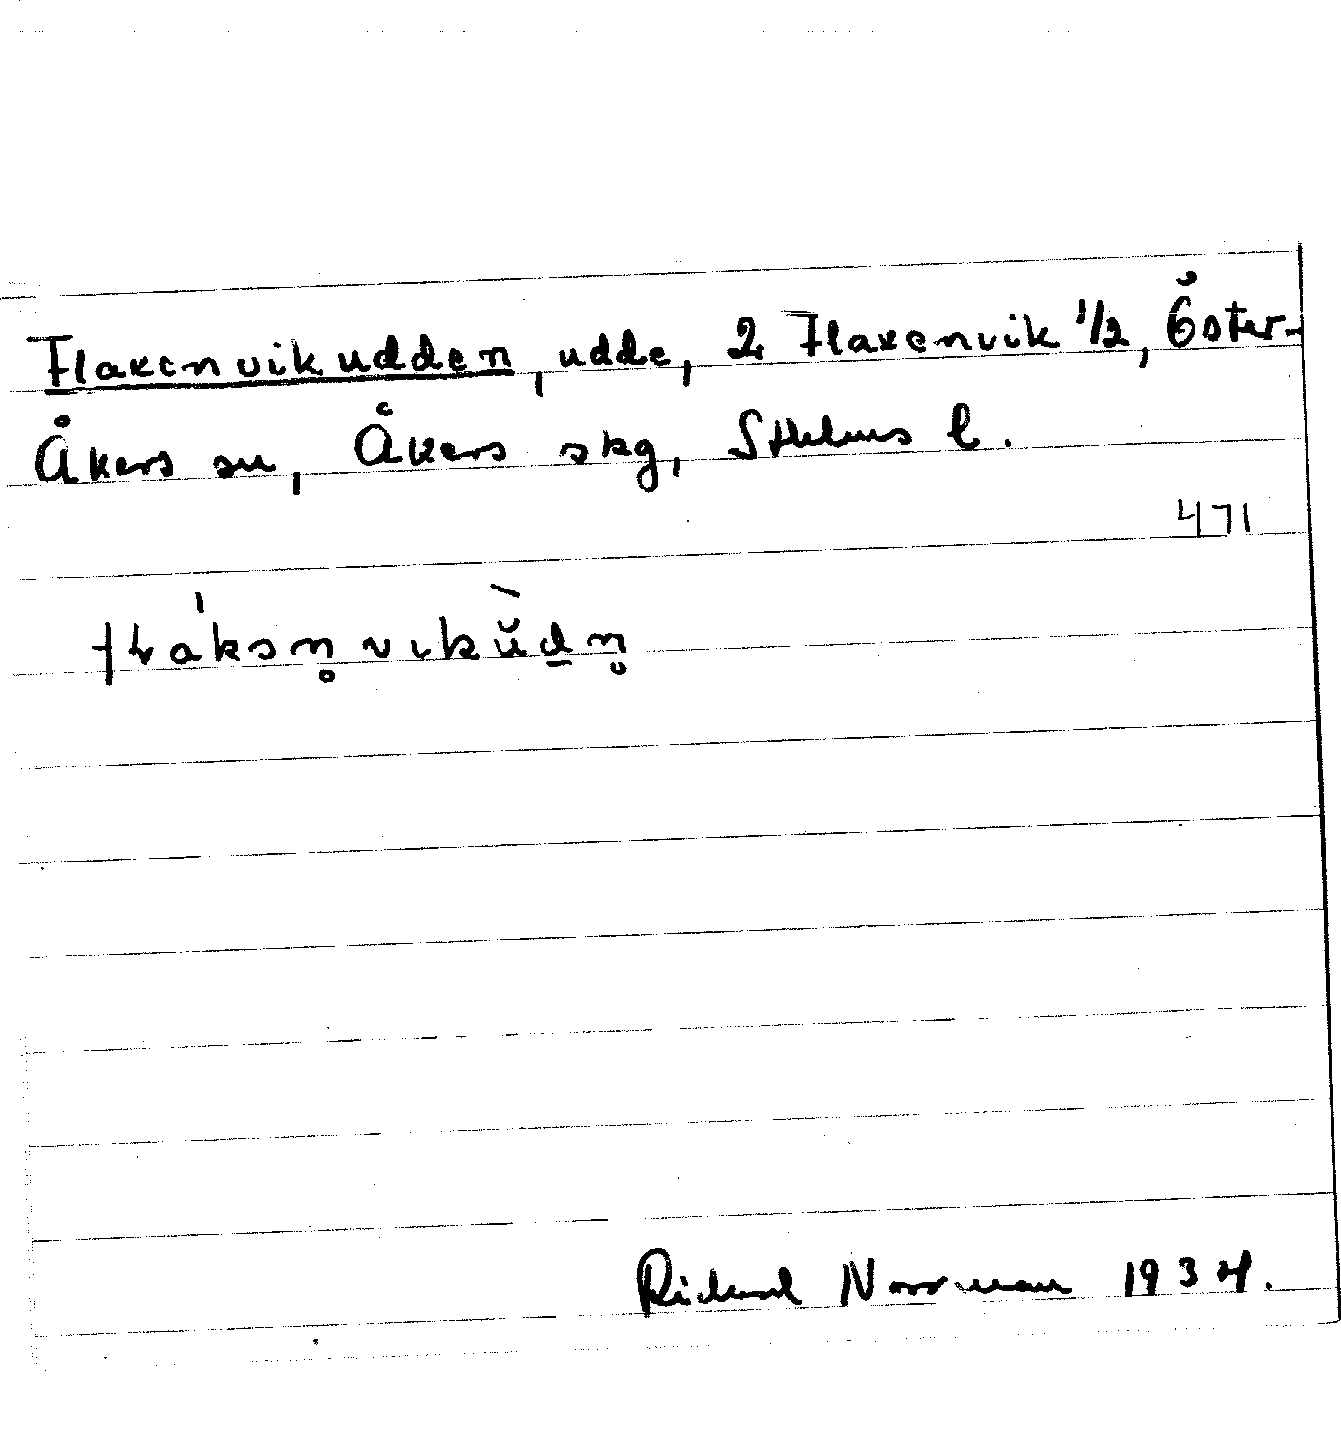 Flaxenvikudden, udde, 2 Flaxenvik 1/2, Öster-
Åkers sn, Åkers skg, Sthlms l.
471
fláksn̥vikŭ̀dn̥
Richard Norrman 1934.